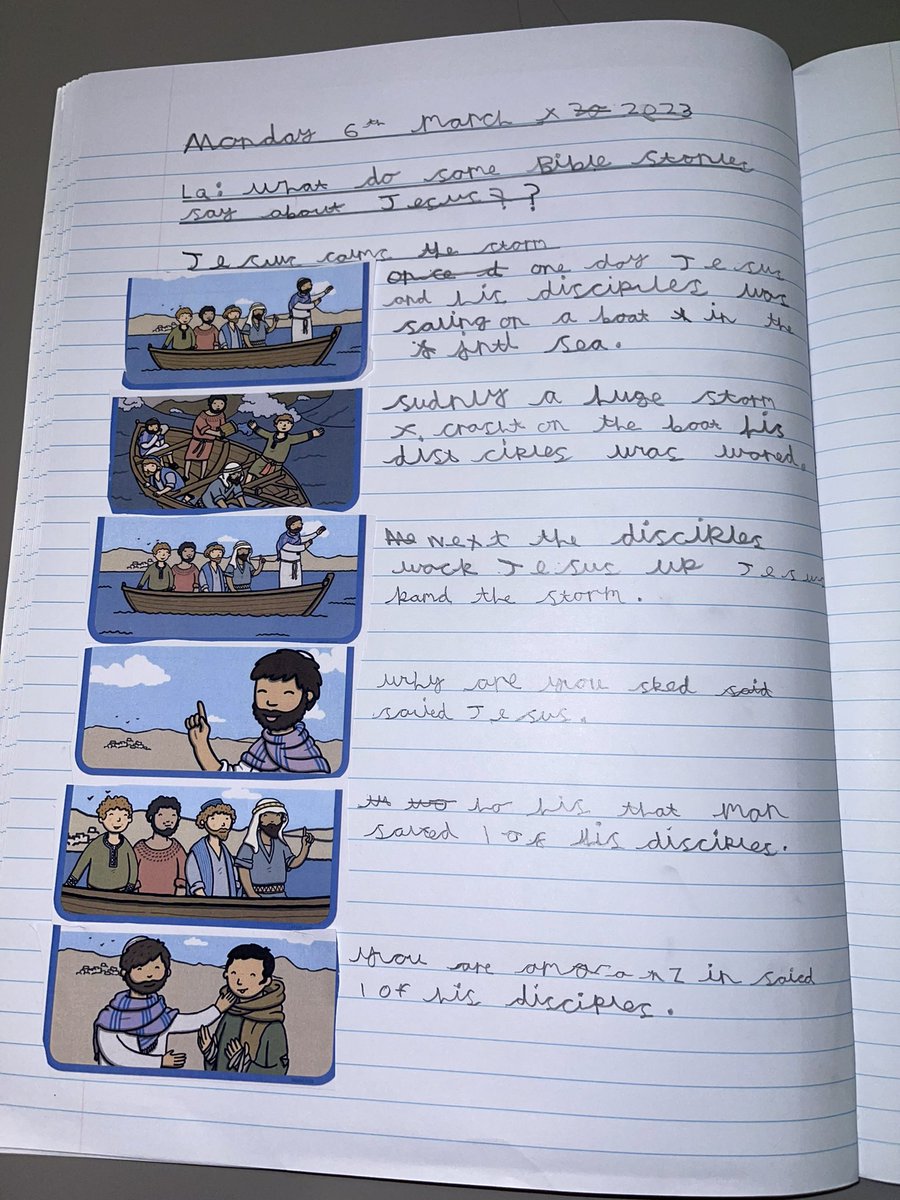 Monday 6th March 2023
La: What do some Bible stories
say about Jesus?
Jesus calms the storm
one day Jesus
and his disciples was
saling on a boat in the
sea.
sudnly a huge storm
crasht on the boat his
dist ciples was wored.
Next the disciples
wock Jesus up Jesus
kamd the storm.
why are you sked
saied Jesus.
ho his that man
saved 1 of his disciples.
you are in saied
1 of his disciples.